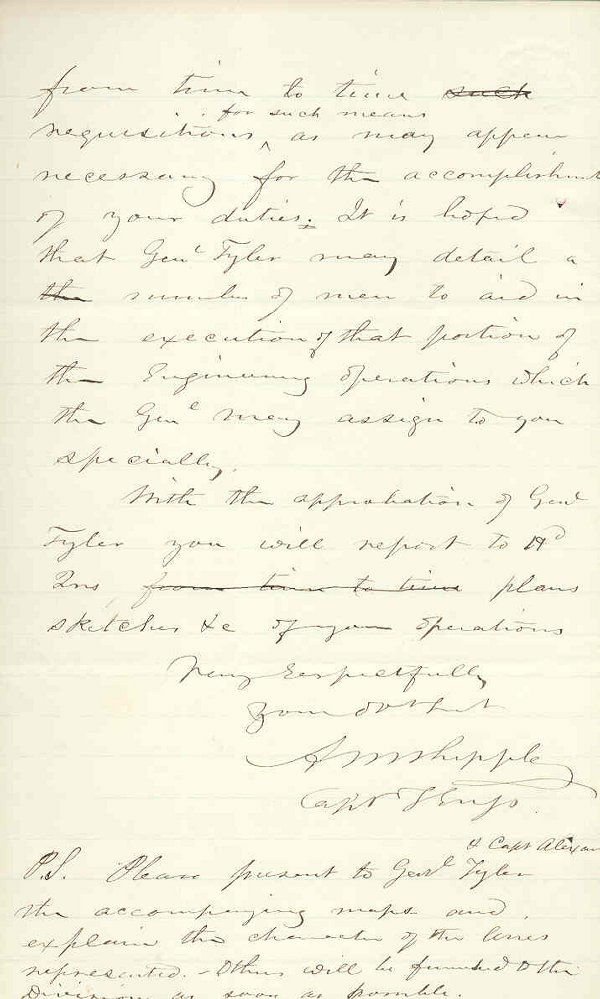 from time to time such
for such means
requisitions ^ as may appear
necessary for the accomplishment
of your duties. It is hoped
that Genl Tyler may detail a
the number of men to aid in
the execution of that portion of
the Engineering operations which
the Genl may assign to you
specially.
With the approbation of Genl
Tyler you will report to Hd
Qrs from time to time plans
sketches &c of your operations
Very Respectfully
Your obt
A W Whipple
Capt T Engs.
& Capt Alexan
P.S. Please present to Genl Tyler
the accompanying maps and
explain the character of the lines
represented. - Others will be furnished to the
Division as soon as possible.